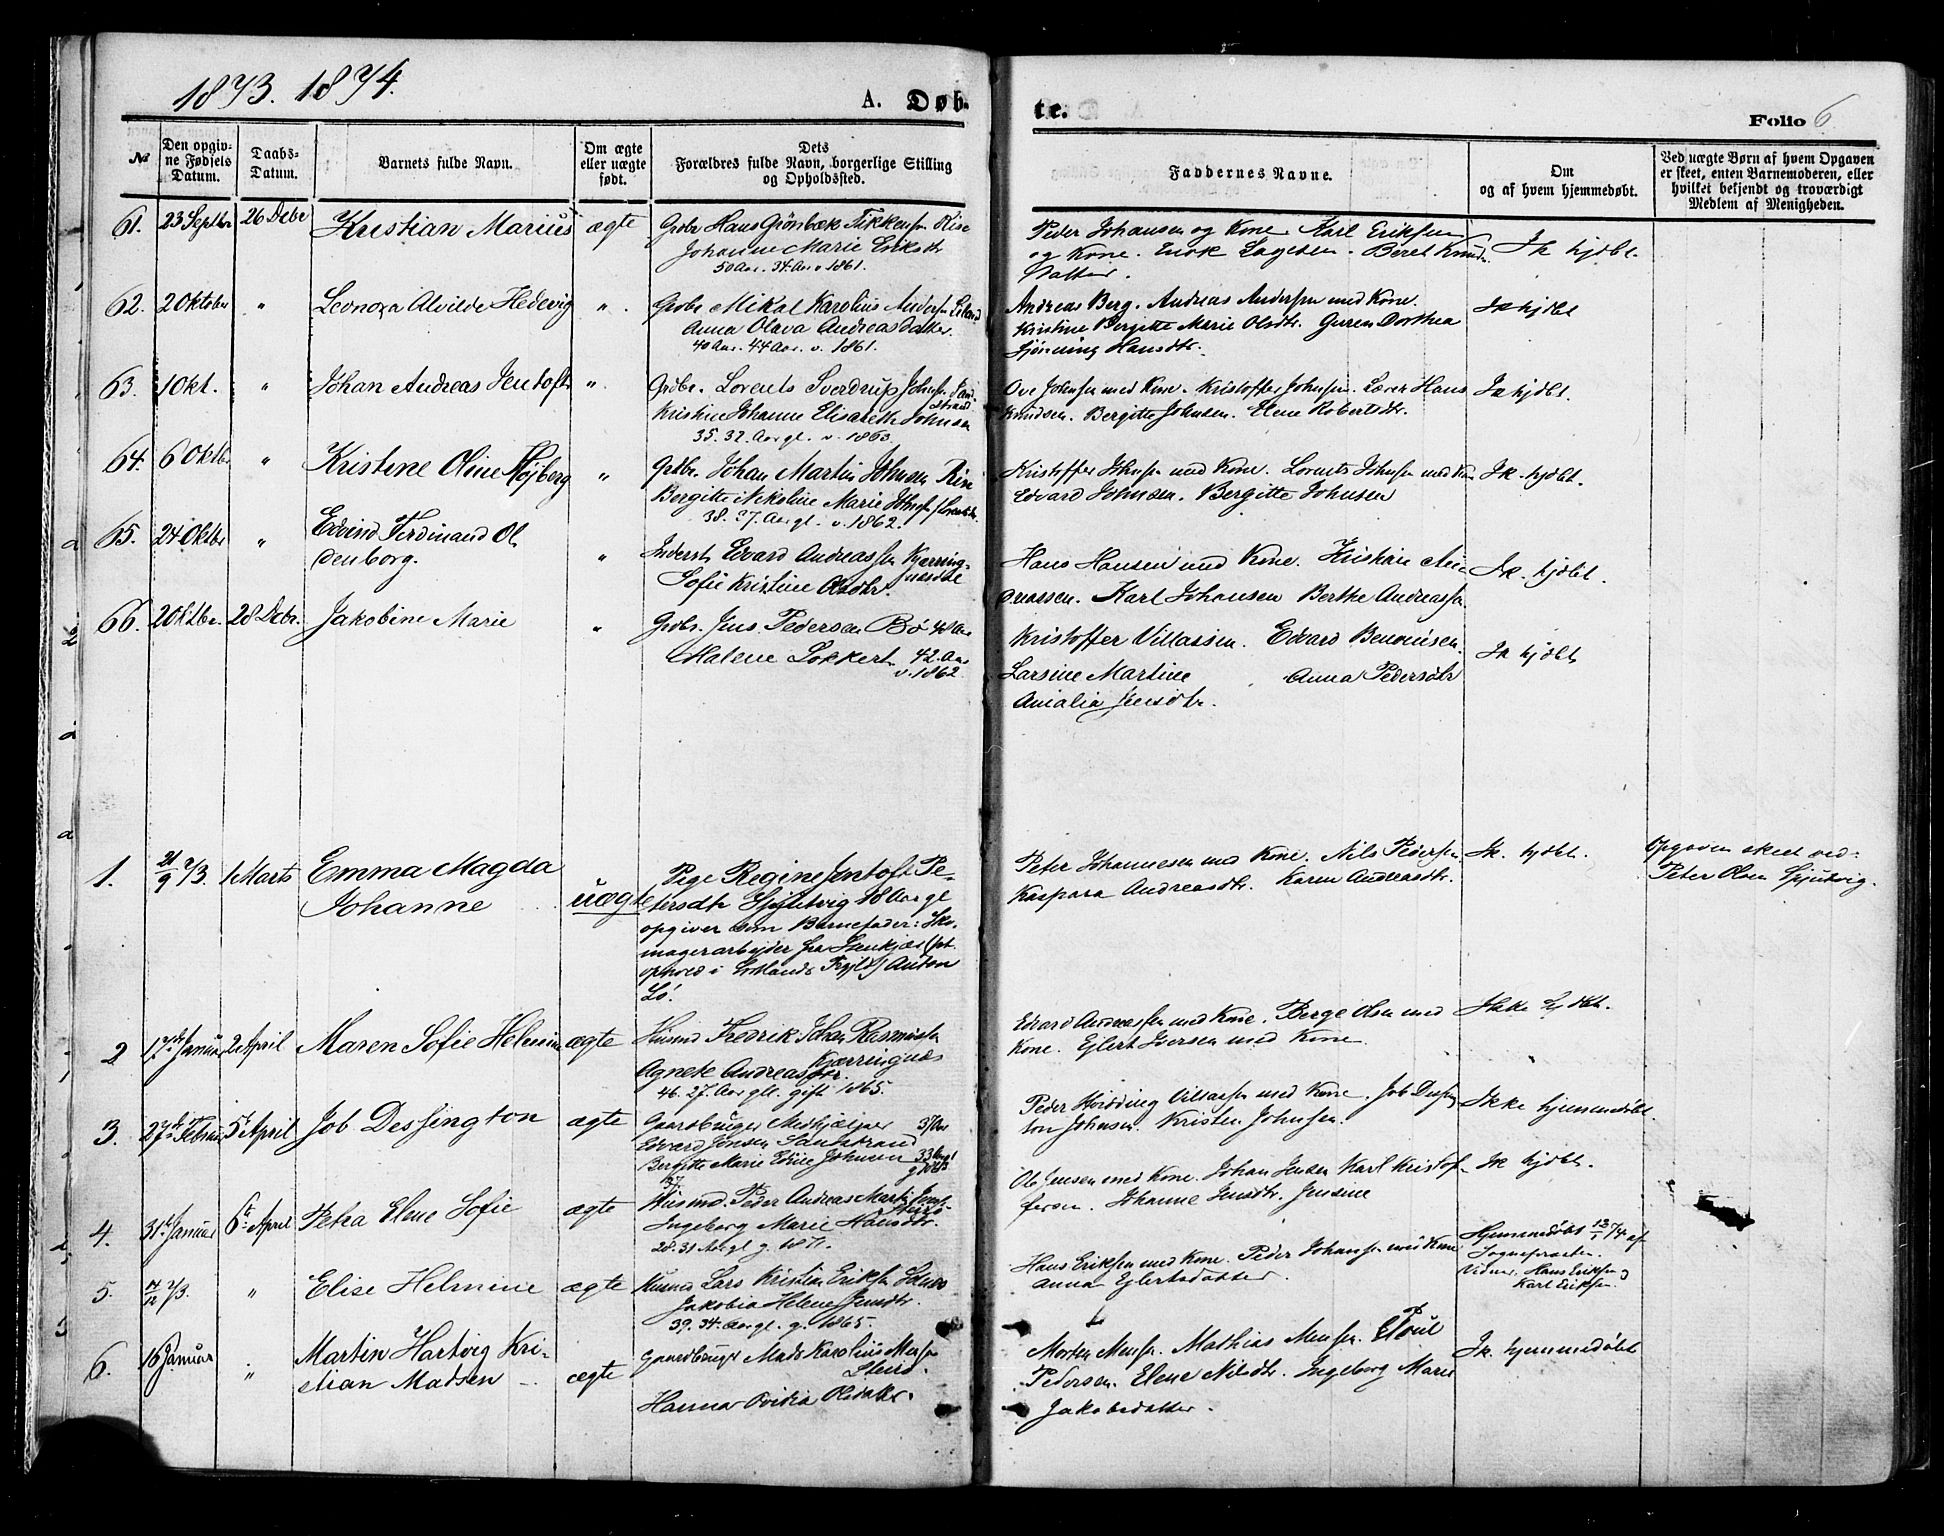 1873. 1874.
A. Døb-
te.
Folio 6
№
Den opgiv-
ne Fødsels
Datum.
Daabs-
Datum.
Barnets fulde Navn.
Om ægte
eller uægte
født.
Dets
Forældres fulde Navn, borgerlige Stilling
og Opholdssted.
Faddernes Navne.
Om
og af hvem hjemmedøbt.
Ved uægte Børn af hvem Opgaven
er skeet, enten Barnemoderen, eller
hvilket bekjendt og troværdigt
Medlem af Menigheden.
61. 23 Septbr 26 Debr Kristian Marius ægte
Gdbr Hans Grönbæk Rise
Johanne Marie Eriksdtr
50 Aar. 34 Aar v 1861.
Peder Johansen og Kone Karl Eriksen
og Kone. Enok Beret Knuds
datter.
Ik hjdbt.
62. 2 Oktober " Leonora Alvilde Hedevig "
Gdbr Mikal Karolius Andersen
Anna Olava Andreasdatter.
40 Aar. 44 Aar. v. 1861.
Andreas Berg. Andreas Andersen med Kone.
Kristine Bergitte Marie Olsdtr. Guren Dorthea
Hansdtr.
Ik hjdbt
63. 1 Okt. " Johan Andreas Jentoft "
Grdbr. Lorents Sverdrup Johnsen Sand-
strand
Kristine Johanne Elisabeth Johnsen
35. 32. Aar gl. v. 1863.
Ove Johnsen med Kone. Kristoffer Johnsen. Lærer Hans
Knudsen. Bergitte Johnsen. Elene Robertsdtr.
Ik hjdbt.
64. 6 Oktbr " Kristine Oline Höjberg "
Grdbr. Johan Martin Johnsen
Bergitte Nikoline Marie
38. 37. Aar gl. v. 1862.
Kristoffer Johnsen med Kone. Lorents Johnsen med Kone
Edvard Johnsen. Bergitte Johnsen
Ik. hjdbt.
65. 24 Oktbr " Edvind Ferdinand Ol
denborg. "
Inderst Edvard Andreassen Kjerring-
næsset
Sofie Kristine Olsdtr.
Hans Hansen med Kone. Kristine An-
dreassen. Karl Johansen Berthe Andreassen
Ik. hjdbt.
66. 2 Oktbr. 28 Debr. Jakobine Marie "
Grdbr. Jens Pedersen Bö
Malene Lokkert 42. Aar
v. 1862
Kristoffer Villassen. Edvard Benonisen.
Larsine Martine Anna Pedersdtr
Amalia Jensdtr.
Ik hjdbt
1. 21/9 73. 1 Marts Emma Magda
Johanne uægte
Pige Regine Jentoft Pe-
tersdtr 18 Aar gl
opgiver som Barnefader: Sko-
magerarbejder fra Stenkjær (pt.
ophold i Anton
Lö.
Peter Johannesen med Kone. Nils Pedersen
Kaspara Andreasdtr. Karen Andreasdtr.
Ik. hjdbt.
Opgaven skeet ved
Peter Olsen
2 17de Januar 2 April Maren Sofie Helmine ægte
Husmd Fredrik Johan Rasmussen
Kjærringnæs
Agnete Andreasdtr.
46. 27. Aar gl. gift 1865.
Edvard Andreassen med Kone. Berge Olsen med
Kone. Ejlert Iversen med Kone
Ikke hjdbt.
3. 27de Februar 5te April Job Dessington ægte
Gaardbruger Medhjælper 37 Aar
Edvard Jonsen Sandstrand
Bergitte Marie Johnsen 33
Peder Hveding Villassen med Kone. Job Dessing
ton Johnsen. Kristen Johnsen.
Ikke hjemmedøbt.
4. 31te Januar 6te April Petra Elene Sofie ægte
Husmd. Peder Andreas
Ingeborg Marie Hansdtr.
28. 31 Aar gl g. 1871.
Ole Jensen med Kone. Johan Jensen Karl Kristof
fersen. Johanne Jensdtr. Jensine
Ik hjdbt.
5. 14/12 73. " Elise Helmine ægte
Husmd Lars Kristian Eriksen
Jakobia Helene Jensdtr.
39. 34. Aar gl. g. 1865.
Hans Eriksen med Kone. Peder Johansen med Kone
Anna Ejlertsdatter.
Hjemmedøbt 13/1 74 af
Sognepresten.
Vidner. Hans Eriksen og
Karl Eriksen.
6. 16 Januar " Martin Hartvig Kri-
stian Madsen ægte
Gaardbruger Mads Karolius Monsen
Hanna Ovidia Olsdatter.
Morten Monsen. Mathias Monsen. Poul
Pedersen. Elene Nilsdtr. Ingeborg Marie
Jakobsdatter.
Ik. hjemmedøbt